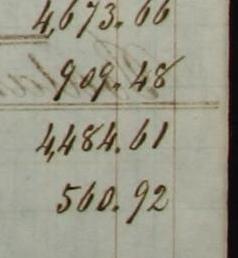 4,673.66
909.48
4,484.61
560.92